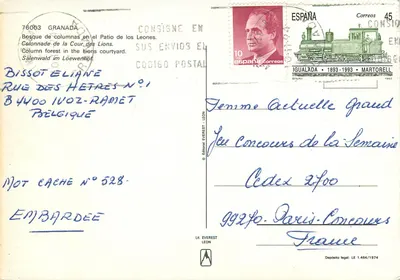 76063 GRANADA
Bosque de columnas en el Patio de los Leones.
Calonnade de la Cour des Lions.
Column forest in the lions courtyard.
Säulenwald im Löwenhof.
CONSIGNE EN
SUS ENVIOS EL
CODIGO POSTAL
10
ESPAÑA
Correos
45
IGUALADA · 1893-1993 · MARTORELL
BISSOT ELIANE
RUE DES HETRES N° 1
B 4400 IVOZ-RAMET
BELGIQUE
MOT CACHE N° 528.
EMBARDEE
© Editorial EVEREST - LEON
LA EVEREST
LEON
Femme Actuelle Grand
Jeu Concours de la Semaine
Cedex 2700
99270 - Paris-Concours
France
Depósito legal LE 1.464/1974